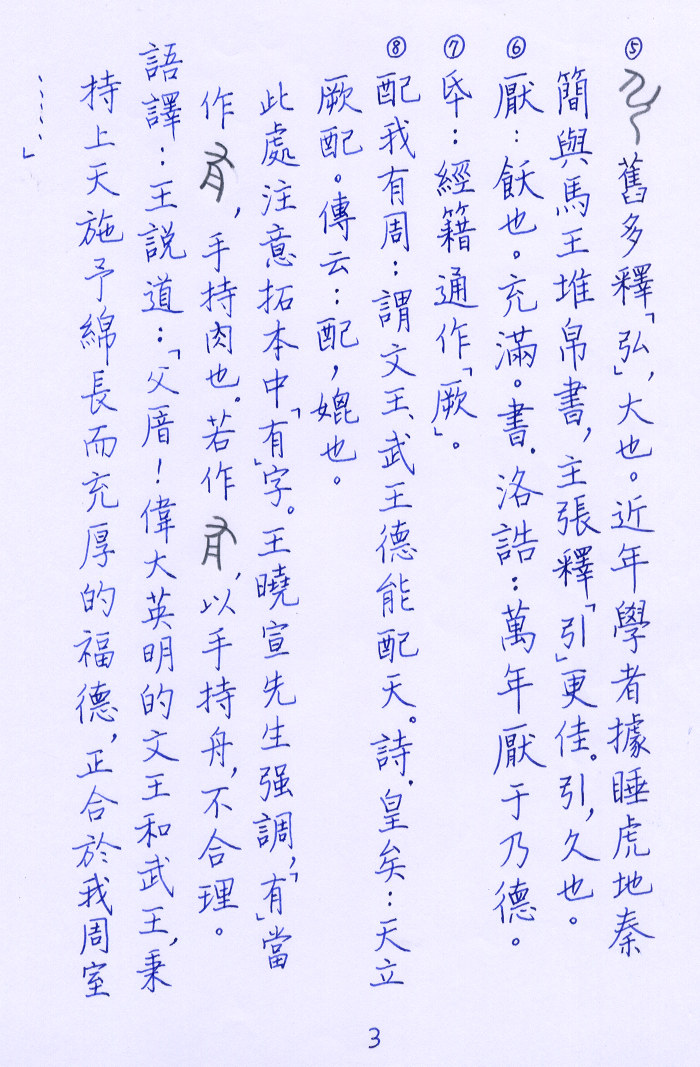 ⑤ 舊多釋「弘」，大也。近年學者據睡虎地秦
簡與馬王堆帛書，主張釋「引」更佳。引，久也。
⑥ 厭：飫也。充滿。書．洛誥：萬年厭于乃德。
⑦ 氒：經籍通作「厥」。
⑧ 配我有周：謂文王、武王德能配天。詩．皇矣：天立
厥配。傳云：配，媲也。
此處注意拓本中「有」字。王曉宣先生强調，「有」當
作，手持肉也。若作，以手持舟，不合理。
語譯：王説道：「父厝！偉大英明的文王和武王，秉
持上天施予綿長而充厚的福德，正合於我周室
……」
3